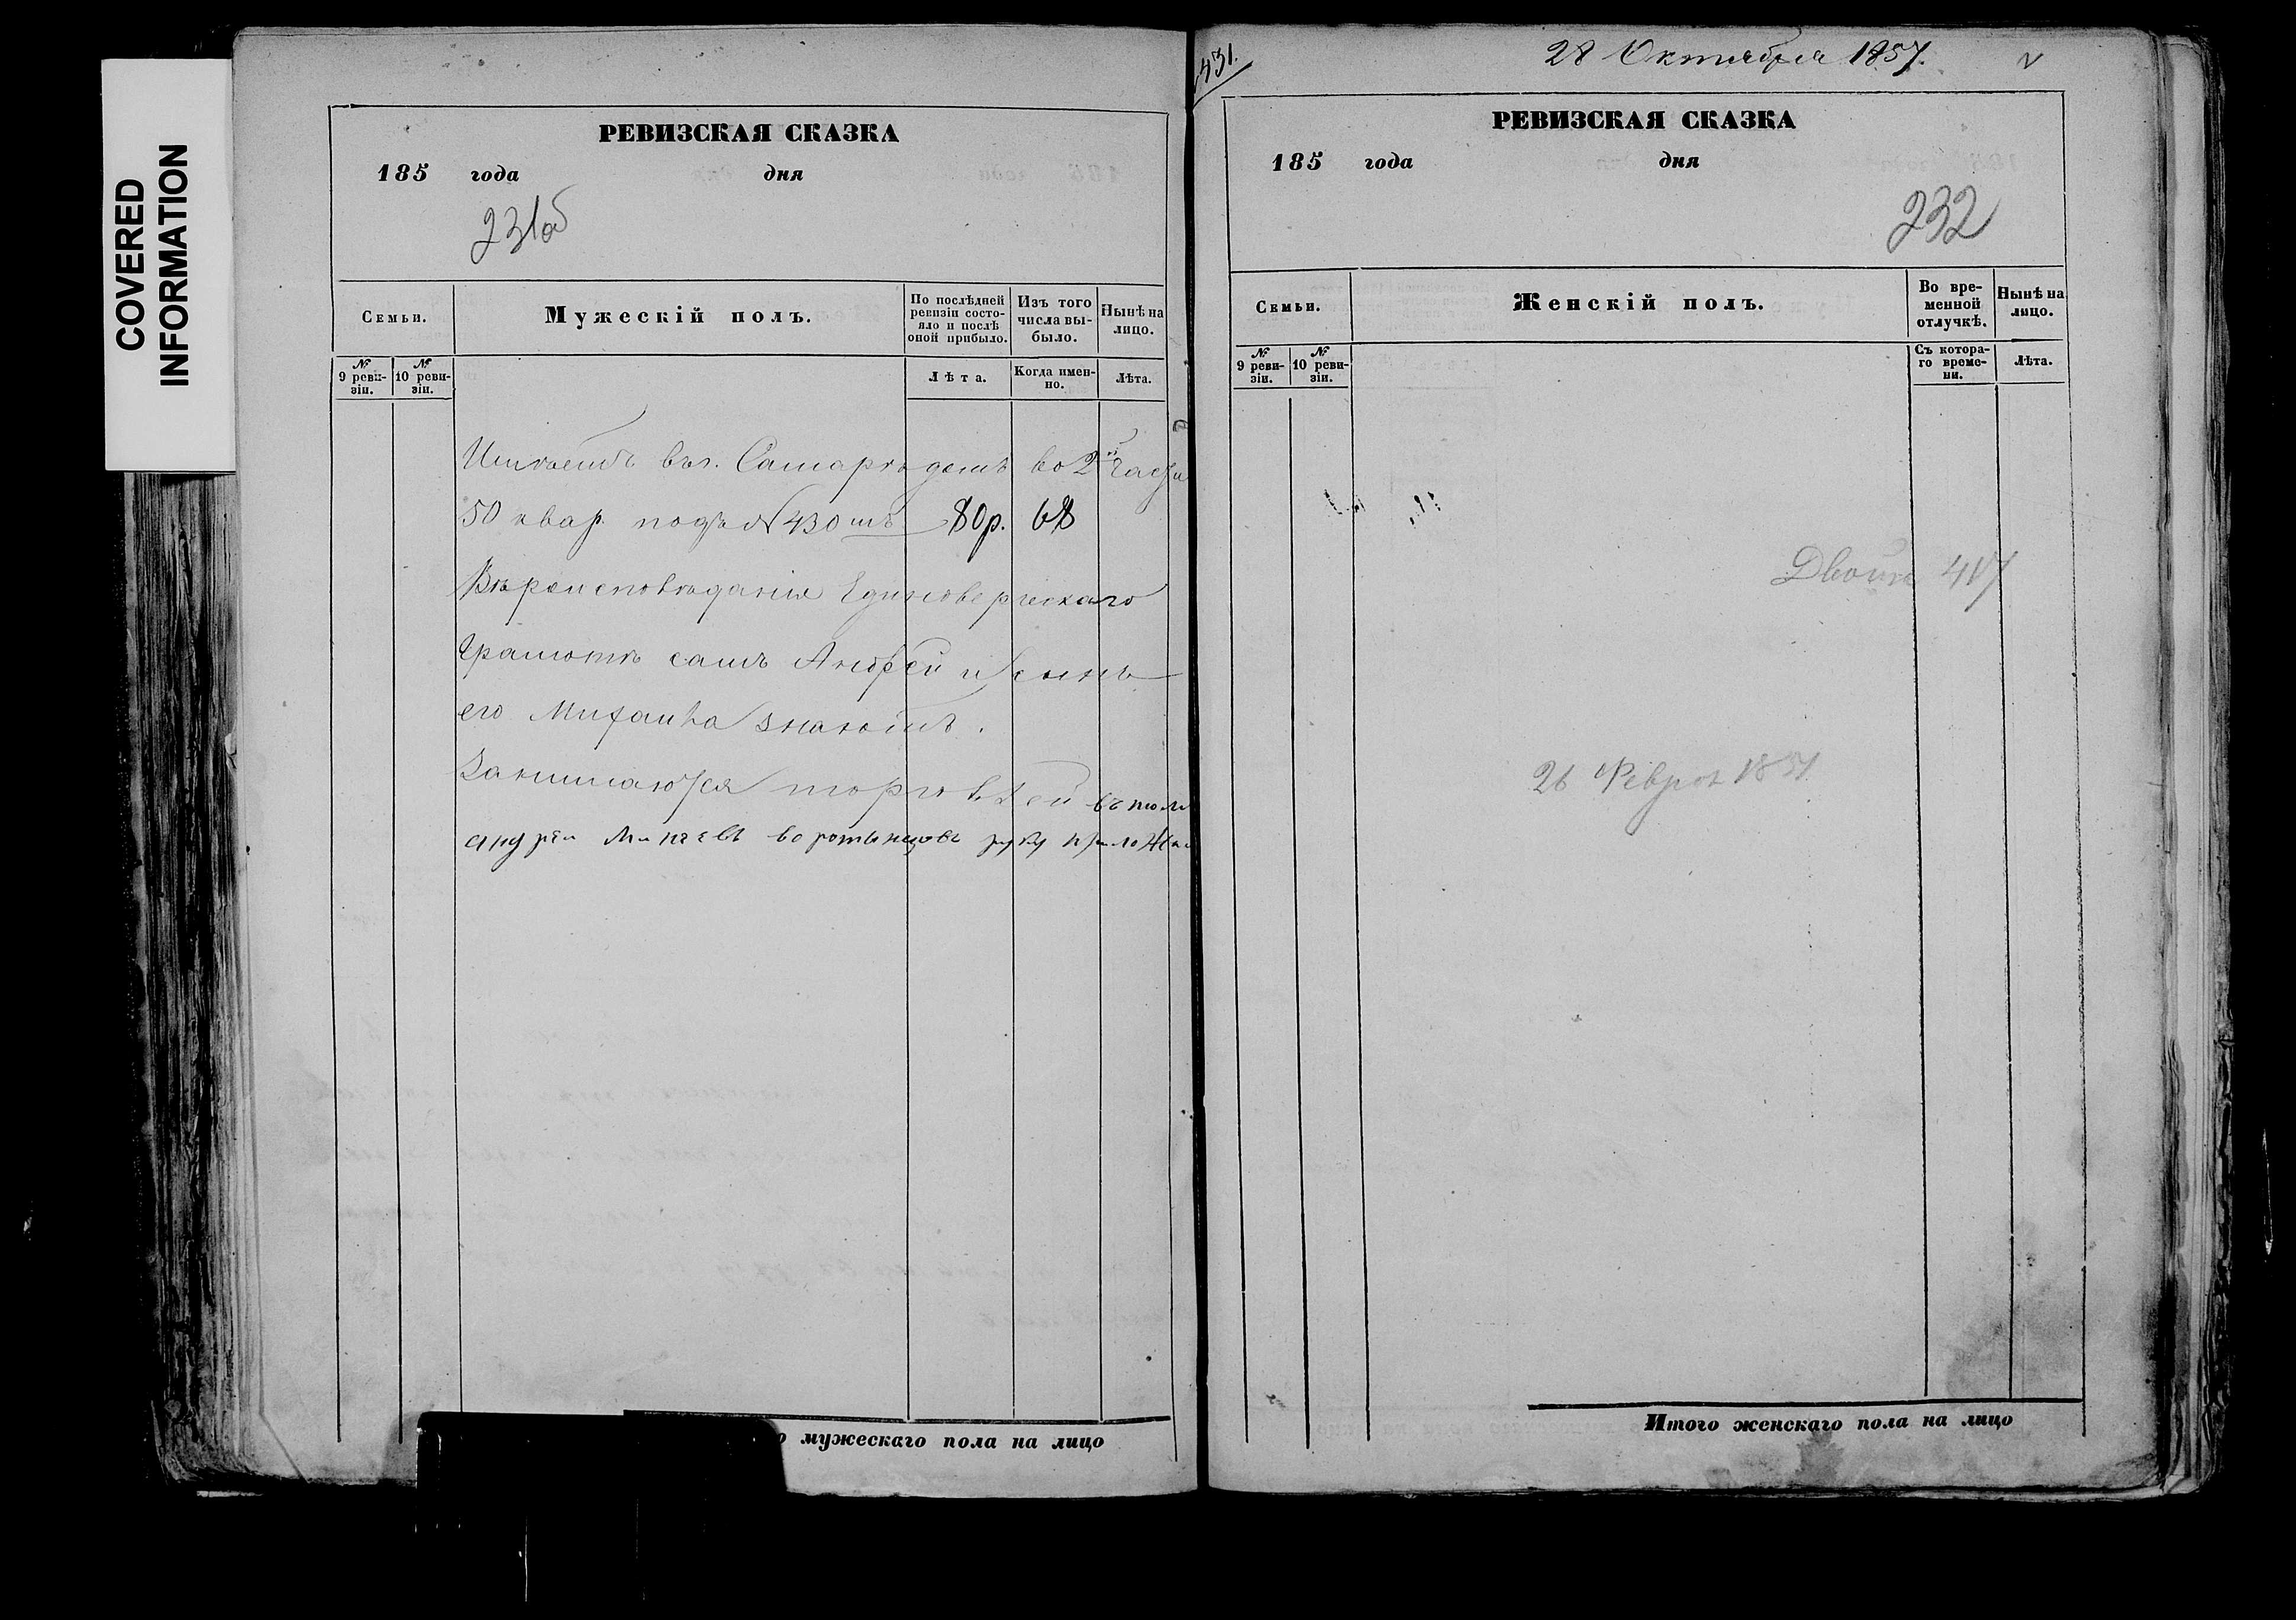 COVERED
INFORMATION
РЕВИЗСКАЯ СКАЗКА
185 года дня
231об
Семьи.
Мужескій полъ.
По послѣдней ревизіи состояло и послѣ оной прибыло.
Изъ того числа выбыло.
Нынѣ на лицо.
№ 9 ревизіи.
№ 10 ревизіи.
Лѣта.
Когда именно.
Лѣта.
Имѣетъ въ г. Самарѣ домъ во 2й части
50 квар. подъ № 430 мъ 80 р. 68
Вѣроисповѣданія Единоверческаго
Грамотѣ самъ Андрей и сынъ
его Михаила знаютъ.
Занимаются торговлей
андреи воротынцовъ руку
о мужескаго пола на лицо
431.
28 Октября 1857.
РЕВИЗСКАЯ СКАЗКА
185 года дня
232
Семьи.
Женскій полъ.
Во временной отлучкѣ.
Нынѣ на лицо.
№ 9 ревизіи.
№ 10 ревизіи.
Съ котораго времени.
Лѣта.
417
26 Феврал 1857.
Итого женскаго пола на лицо